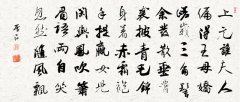 上元誰夫人
偏得王母嬌
嵯峨三角髻
余髮散垂腰
裘披青毛錦
身著赤霜袍
手提嬴女兒
閒與鳳吹簫
眉語兩自笑
忽然隨風飄